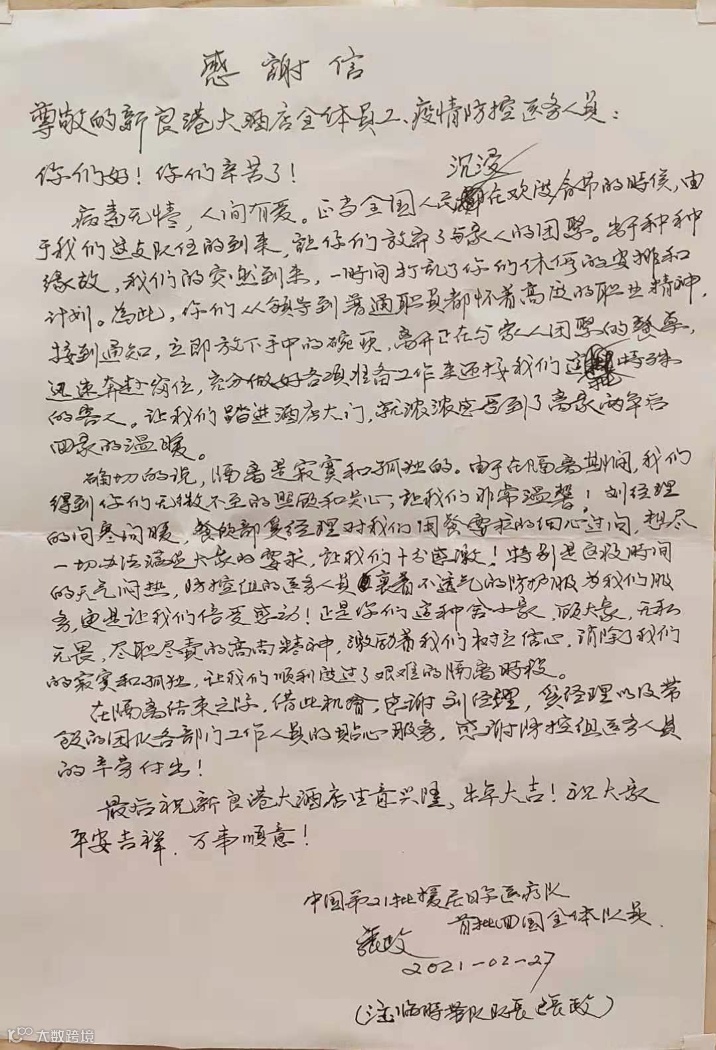 感謝信
尊敬的新良港大酒店全体员工、疫情防控医务人员：
你们好！你们辛苦了！
沉浸
病毒无情，人间有爱。正当全国人民在欢度春节的時候，由
于我们这支队伍的到来，让你们放弃了与家人的团聚。出于种种
缘故，我们的突然到来，一時间打乱了你们休假的安排和
计划。為此，你们从领导到普通职员都怀着高尚的职业精神，
接到通知，立即放下手中的碗筷，离开正在与家人团聚的餐桌，
迅速奔赴岗位，充分做好各项准备工作来迎接我们这特殊
的客人。让我们踏进酒店大门，就浓浓感受到了离家两年后
回家的温暖。
确切的说，隔离是寂寞和孤独的。由于在隔离期间，我们
得到你们无微不至的照顾和关心，让我们非常温馨！刘经理
的问寒问暖，餐饮部经理对我们用餐需求的细心过问，想尽
一切办法满足大家的要求，让我们十分感激！特别是这段時间
的天气闷热，防控组的医务人员裹着不透气的防护服为我们服
务，更是让我们倍受感动！正是你们这种舍小家，顾大家，无私
无畏，尽职尽责的高尚精神，激励着我们树立信心，消除了我们
的寂寞和孤独，让我们顺利度过了艰难的隔离時段。
在隔离结束之际，借此机會，感谢刘经理，经理以及带
领的团队各部门工作人员的貼心服务，感谢防控组医务人员
的辛劳付出！
最后祝新良港大酒店生意兴隆，牛年大吉！祝大家
平安吉祥，万事顺意！
中国第21批援尼日尔医疗队
首批回国全体队员
張政
2021-02-27
（注臨時带队队長張政）
大数跨境